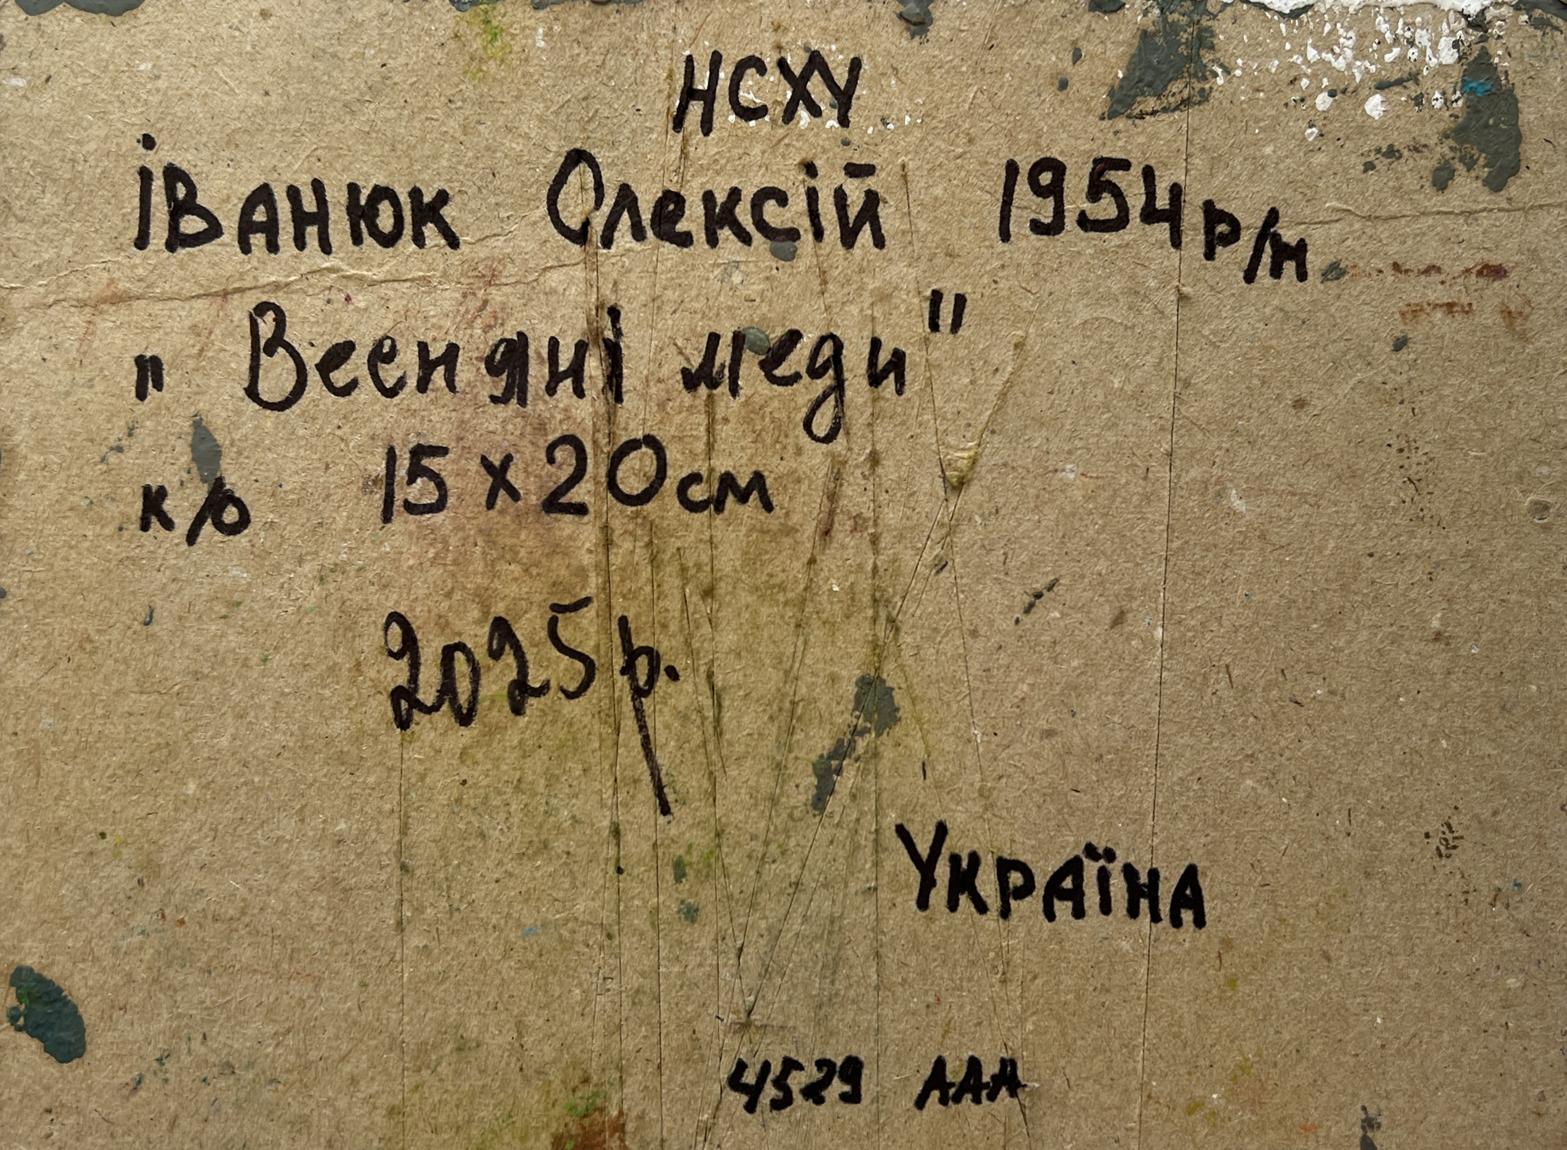 НСХУ
Іванюк Олексій 1954 р/н
„Весняні меди"
к/о 15 x 20 см
2025 р.
Україна
4529 ААА